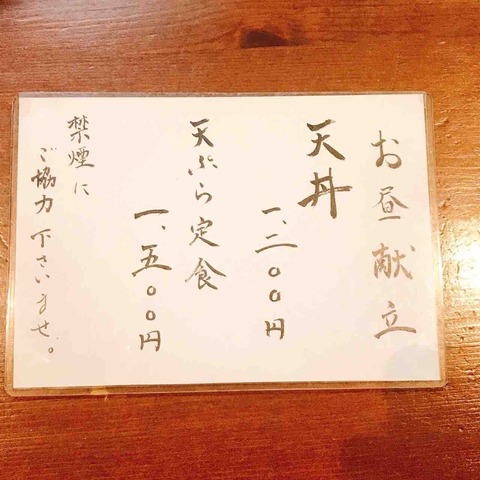 お昼献立
天丼
一、二〇〇円
天ぷら定食
一、五〇〇円
禁煙に
ご協力下さいませ。